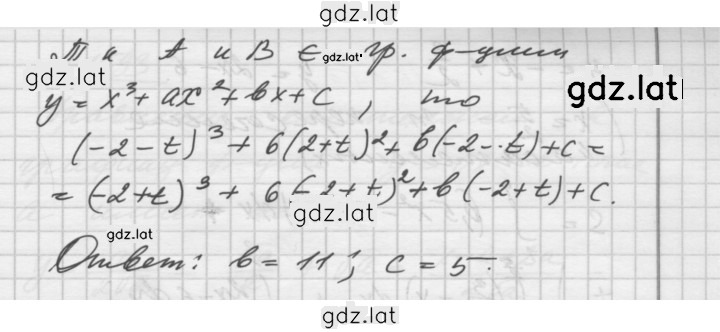 gdz.lat
Т к A и B ∈ gdz.lat гр. ф-ции
gdz.lat
y = x³ + ax² + bx + c, то gdz.lat
(-2-t)³ + 6(2+t)² + b(-2-t) + c =
= (-2+t)³ + 6(-2+t)² + b(-2+t) + c.
gdz.lat
gdz.lat
Ответ: b = 11; c = 5.
gdz.lat
gdz.lat